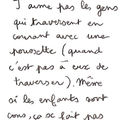 J'aime pas les gens
qui traversent en
courant avec une
poussette (quand
c'est pas à eux de
traverser). Même
si les enfants sont
cons, ça se fait pas